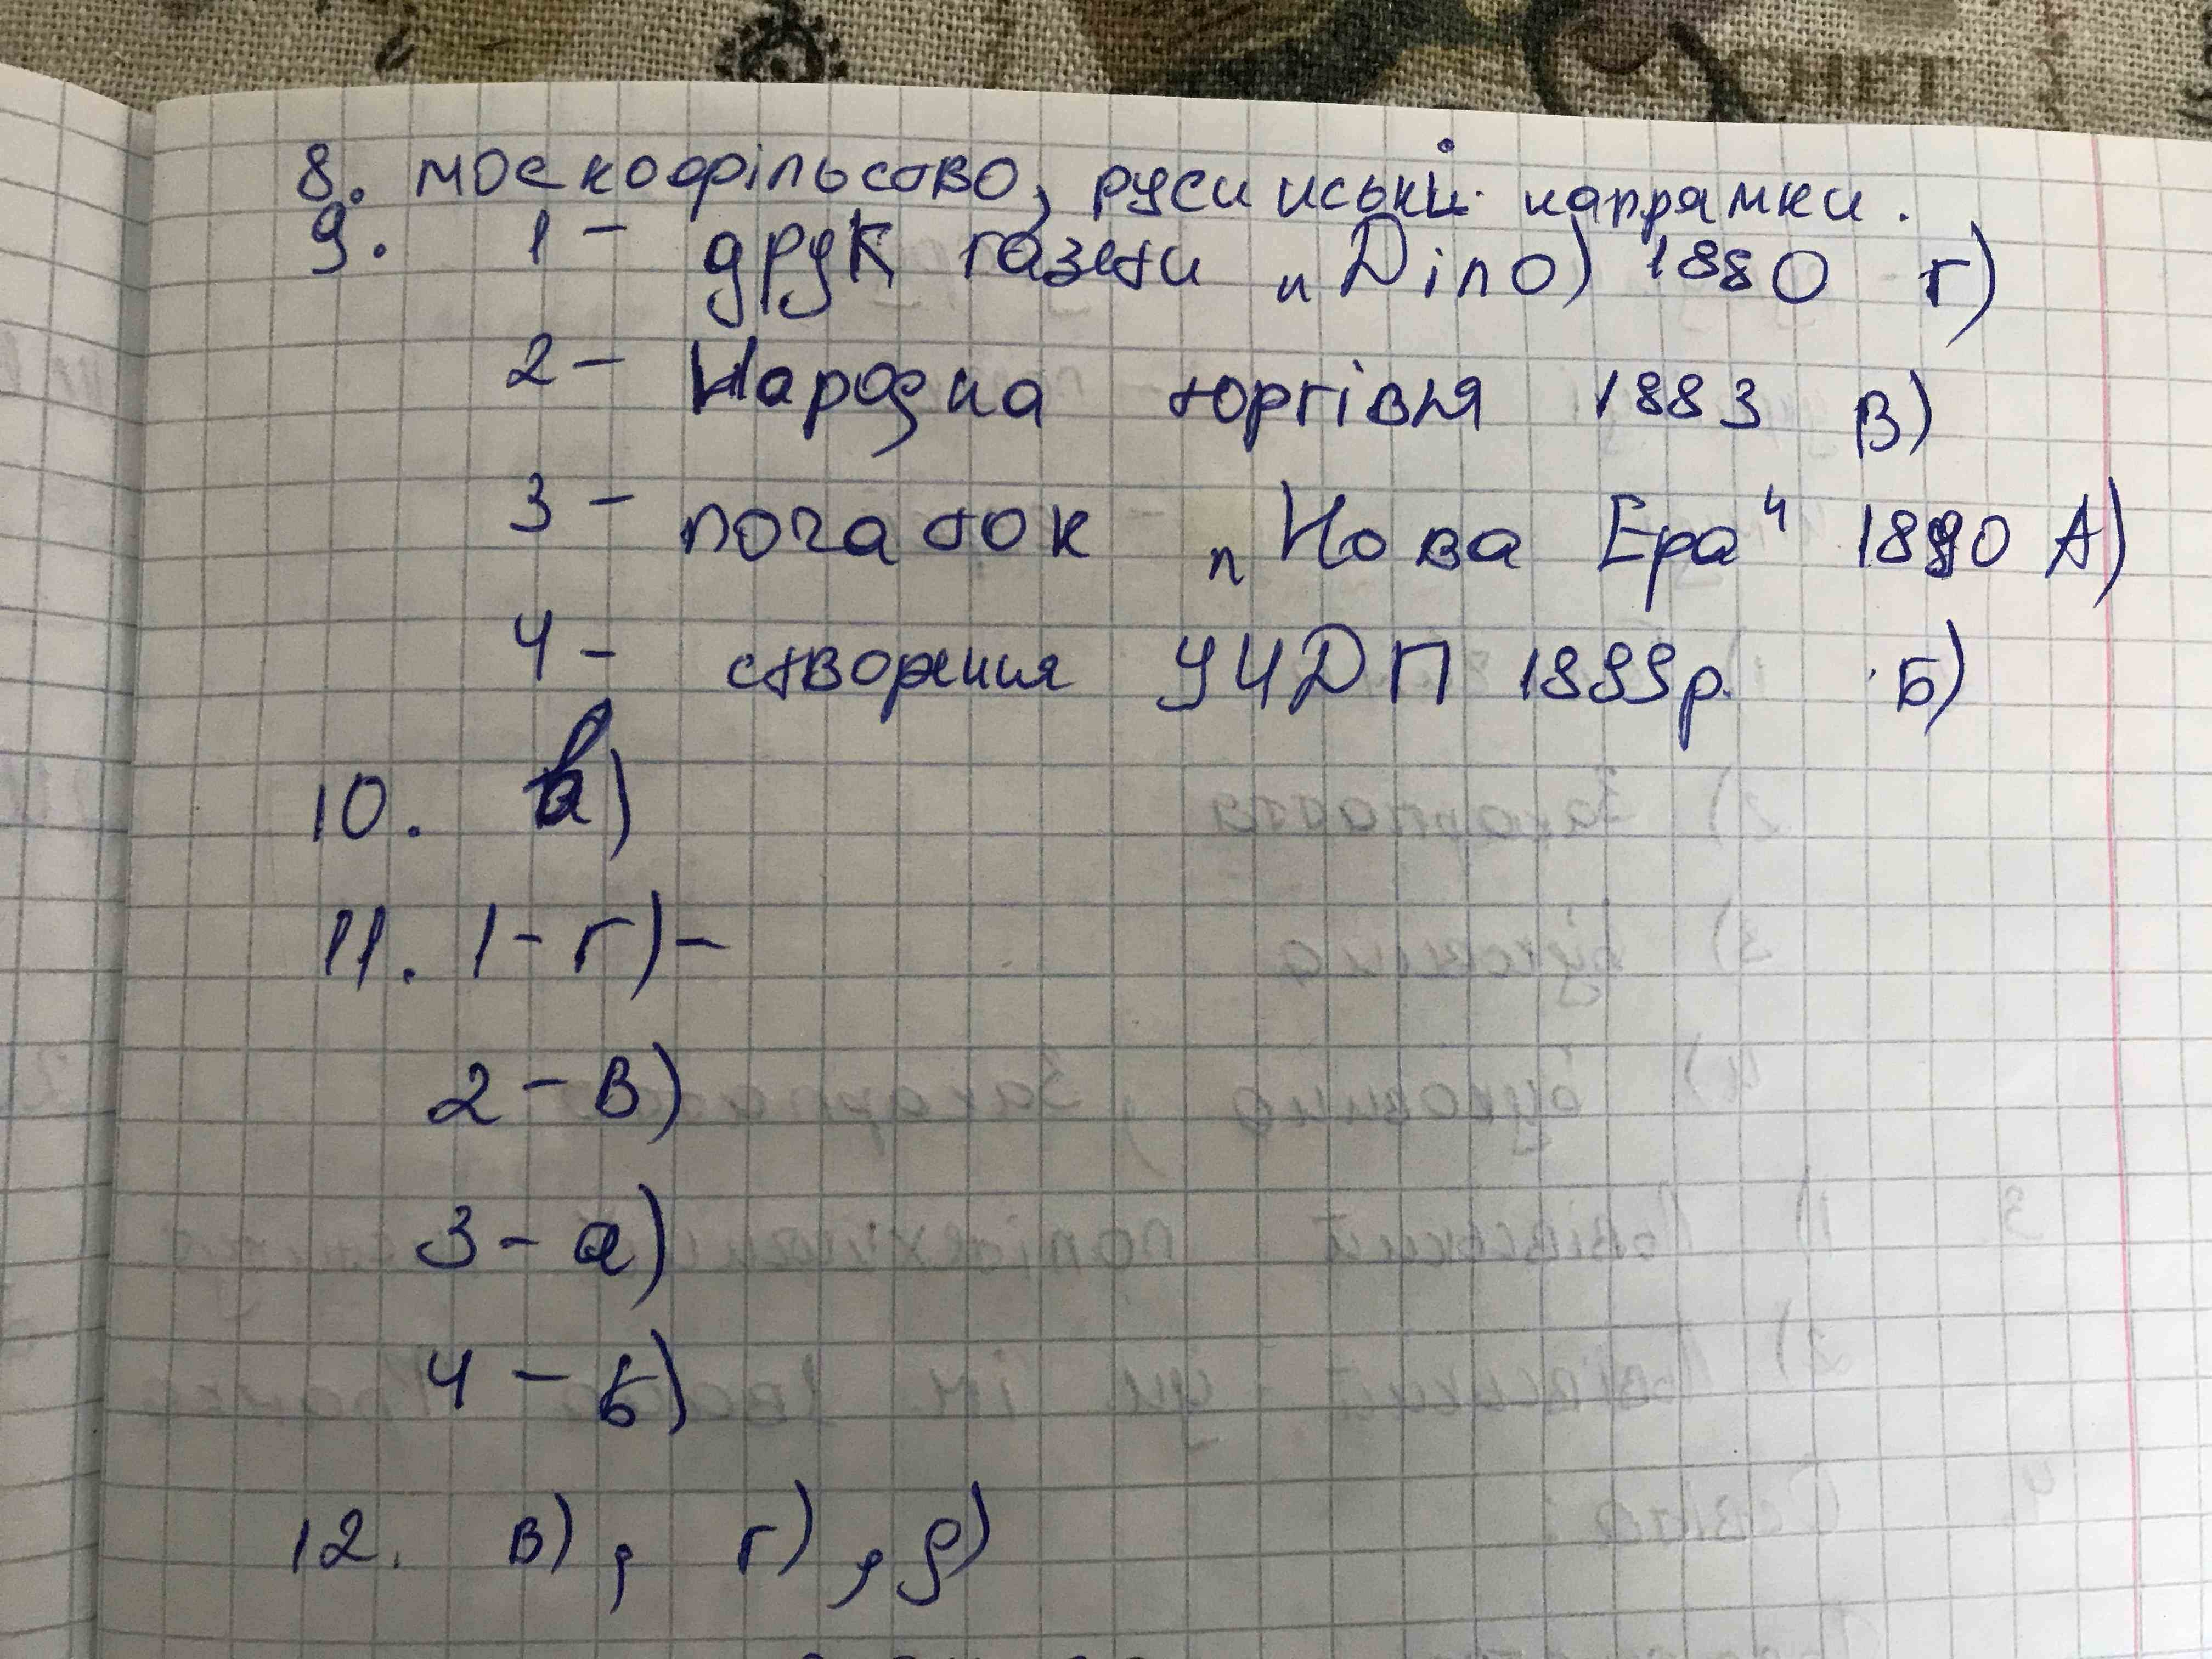 8. москофільство, русинські напрямки.
9. 1 – друк газети „Діло) 1880 г)
2 – Народна торгівля 1883 В)
3 – початок „Нова Ера" 1890 А)
4 – створення УНДП 1899р. Б)
10.
11. 1 – г) –
2 – В)
3 – а)
4 – б)
12. в), г), д)